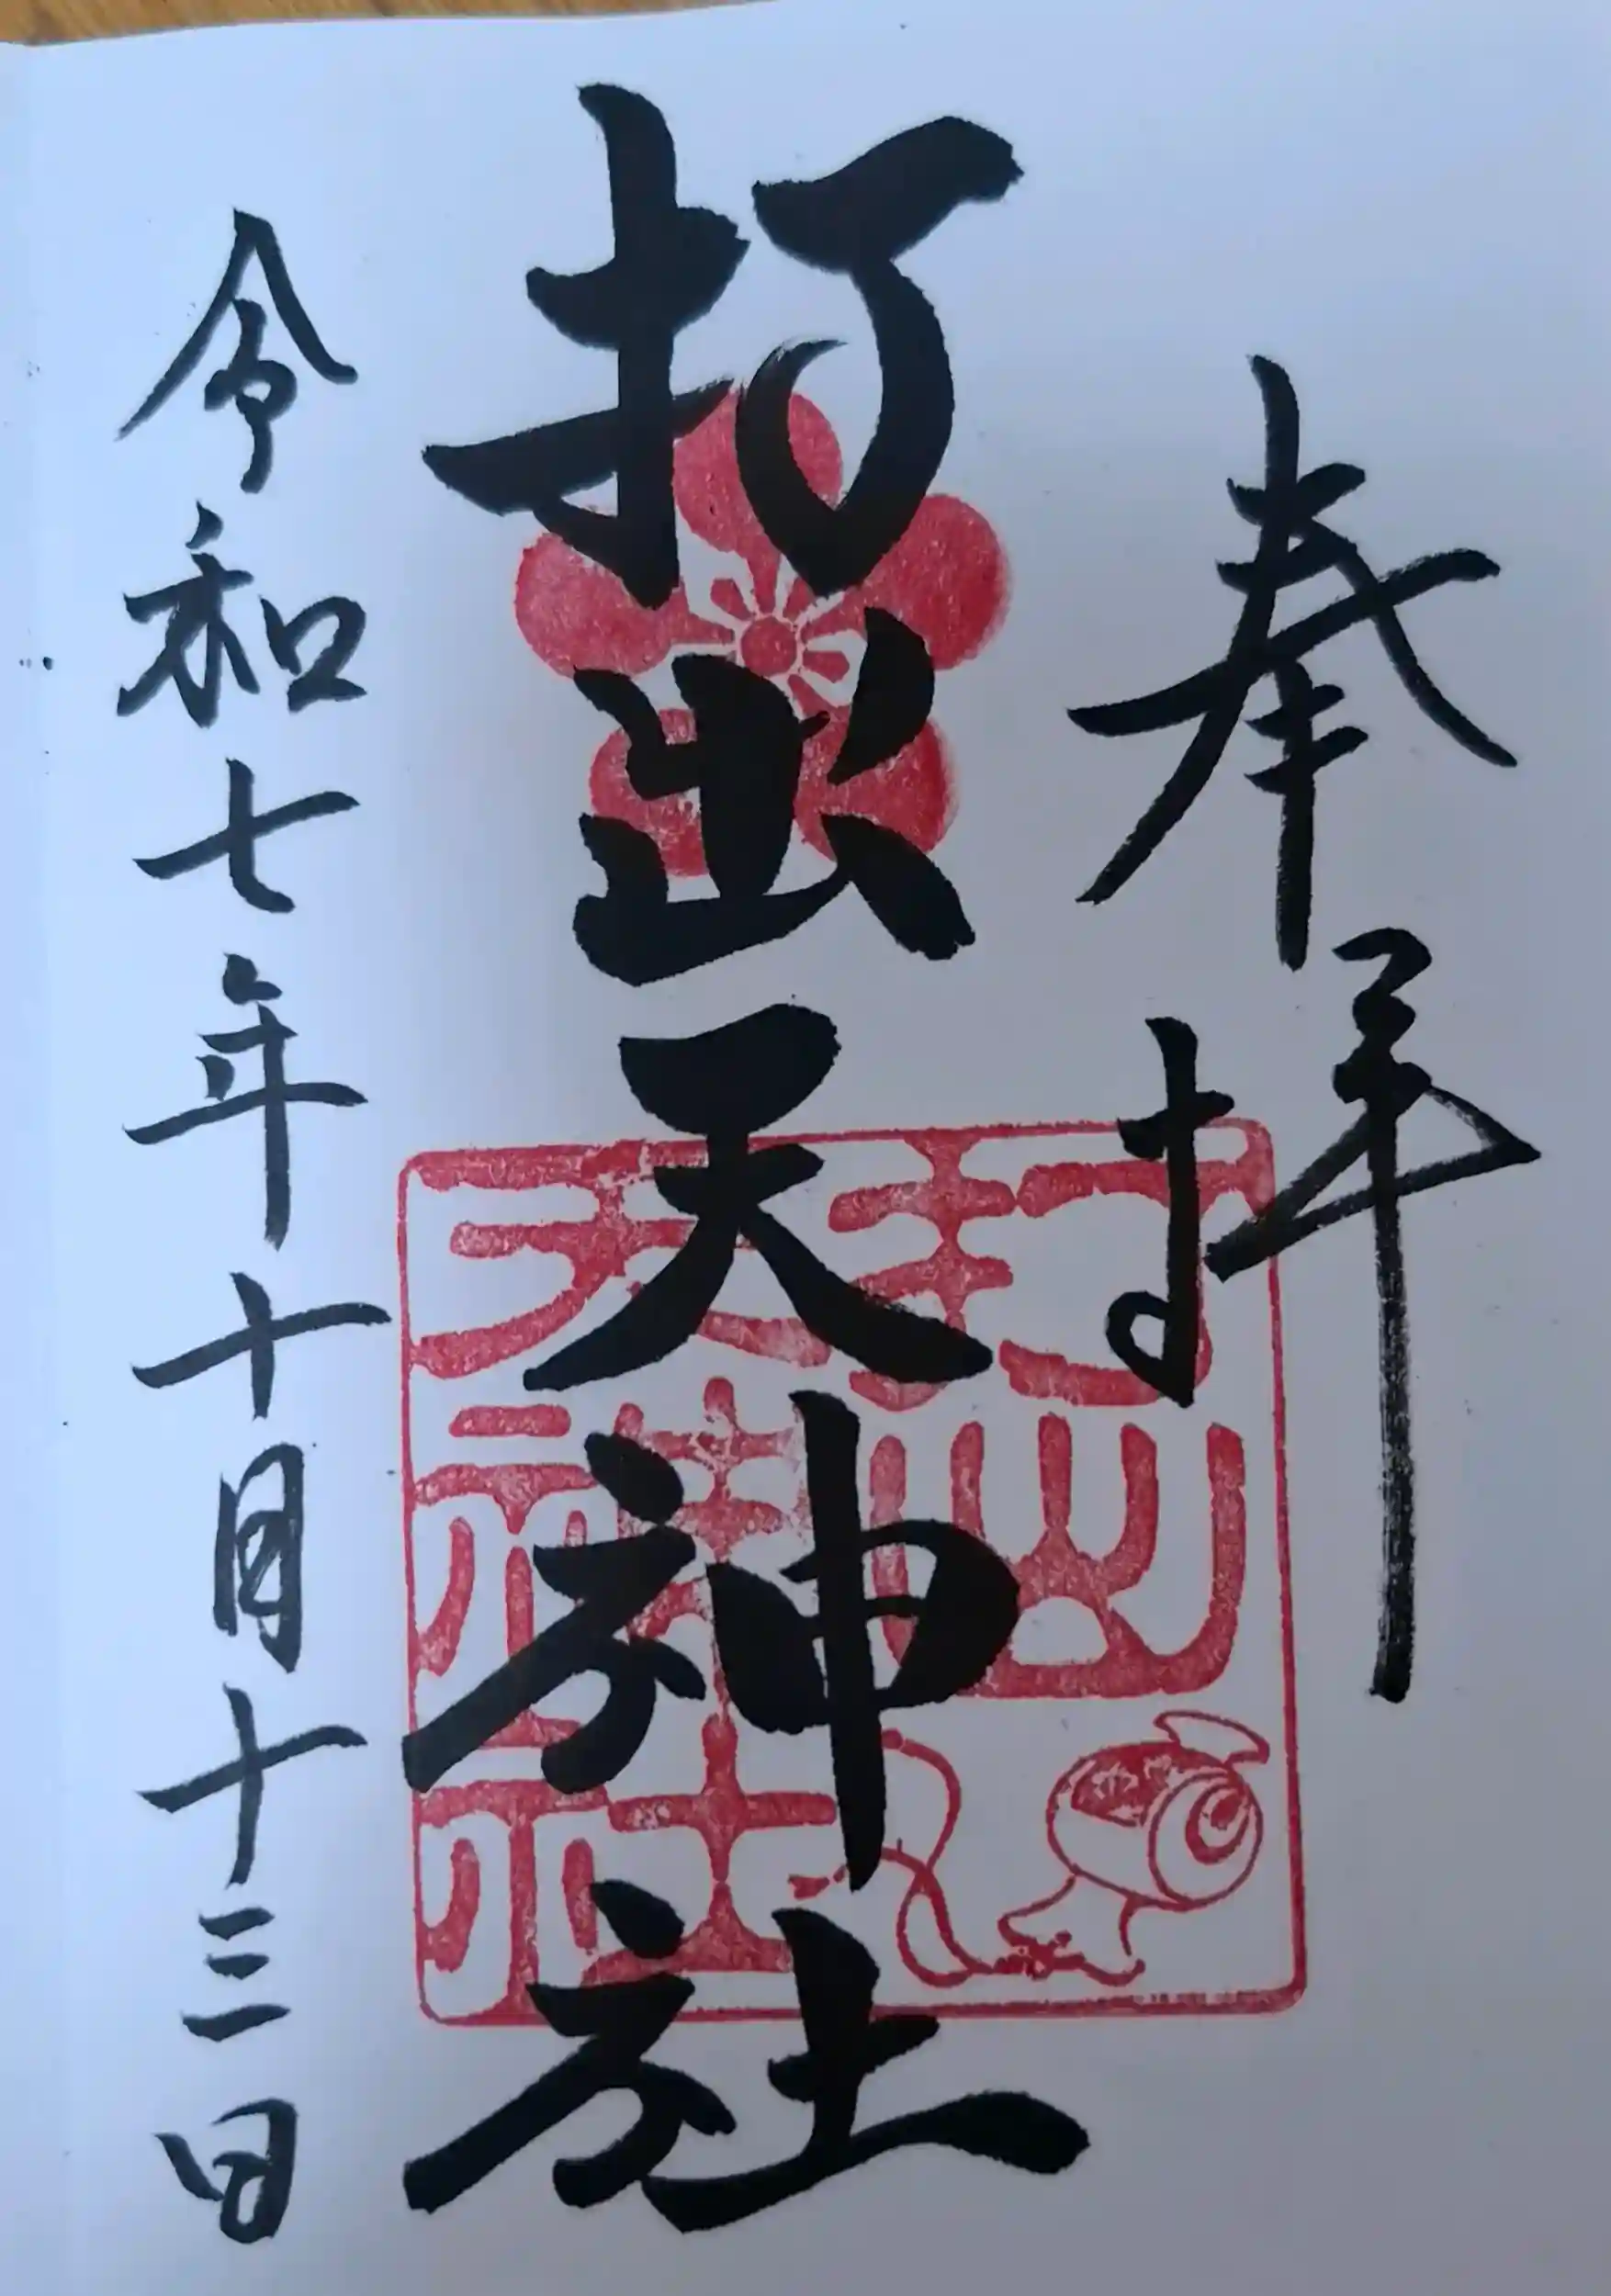 奉拝
打出天神社
打出
天神社
令和七年十月十三日